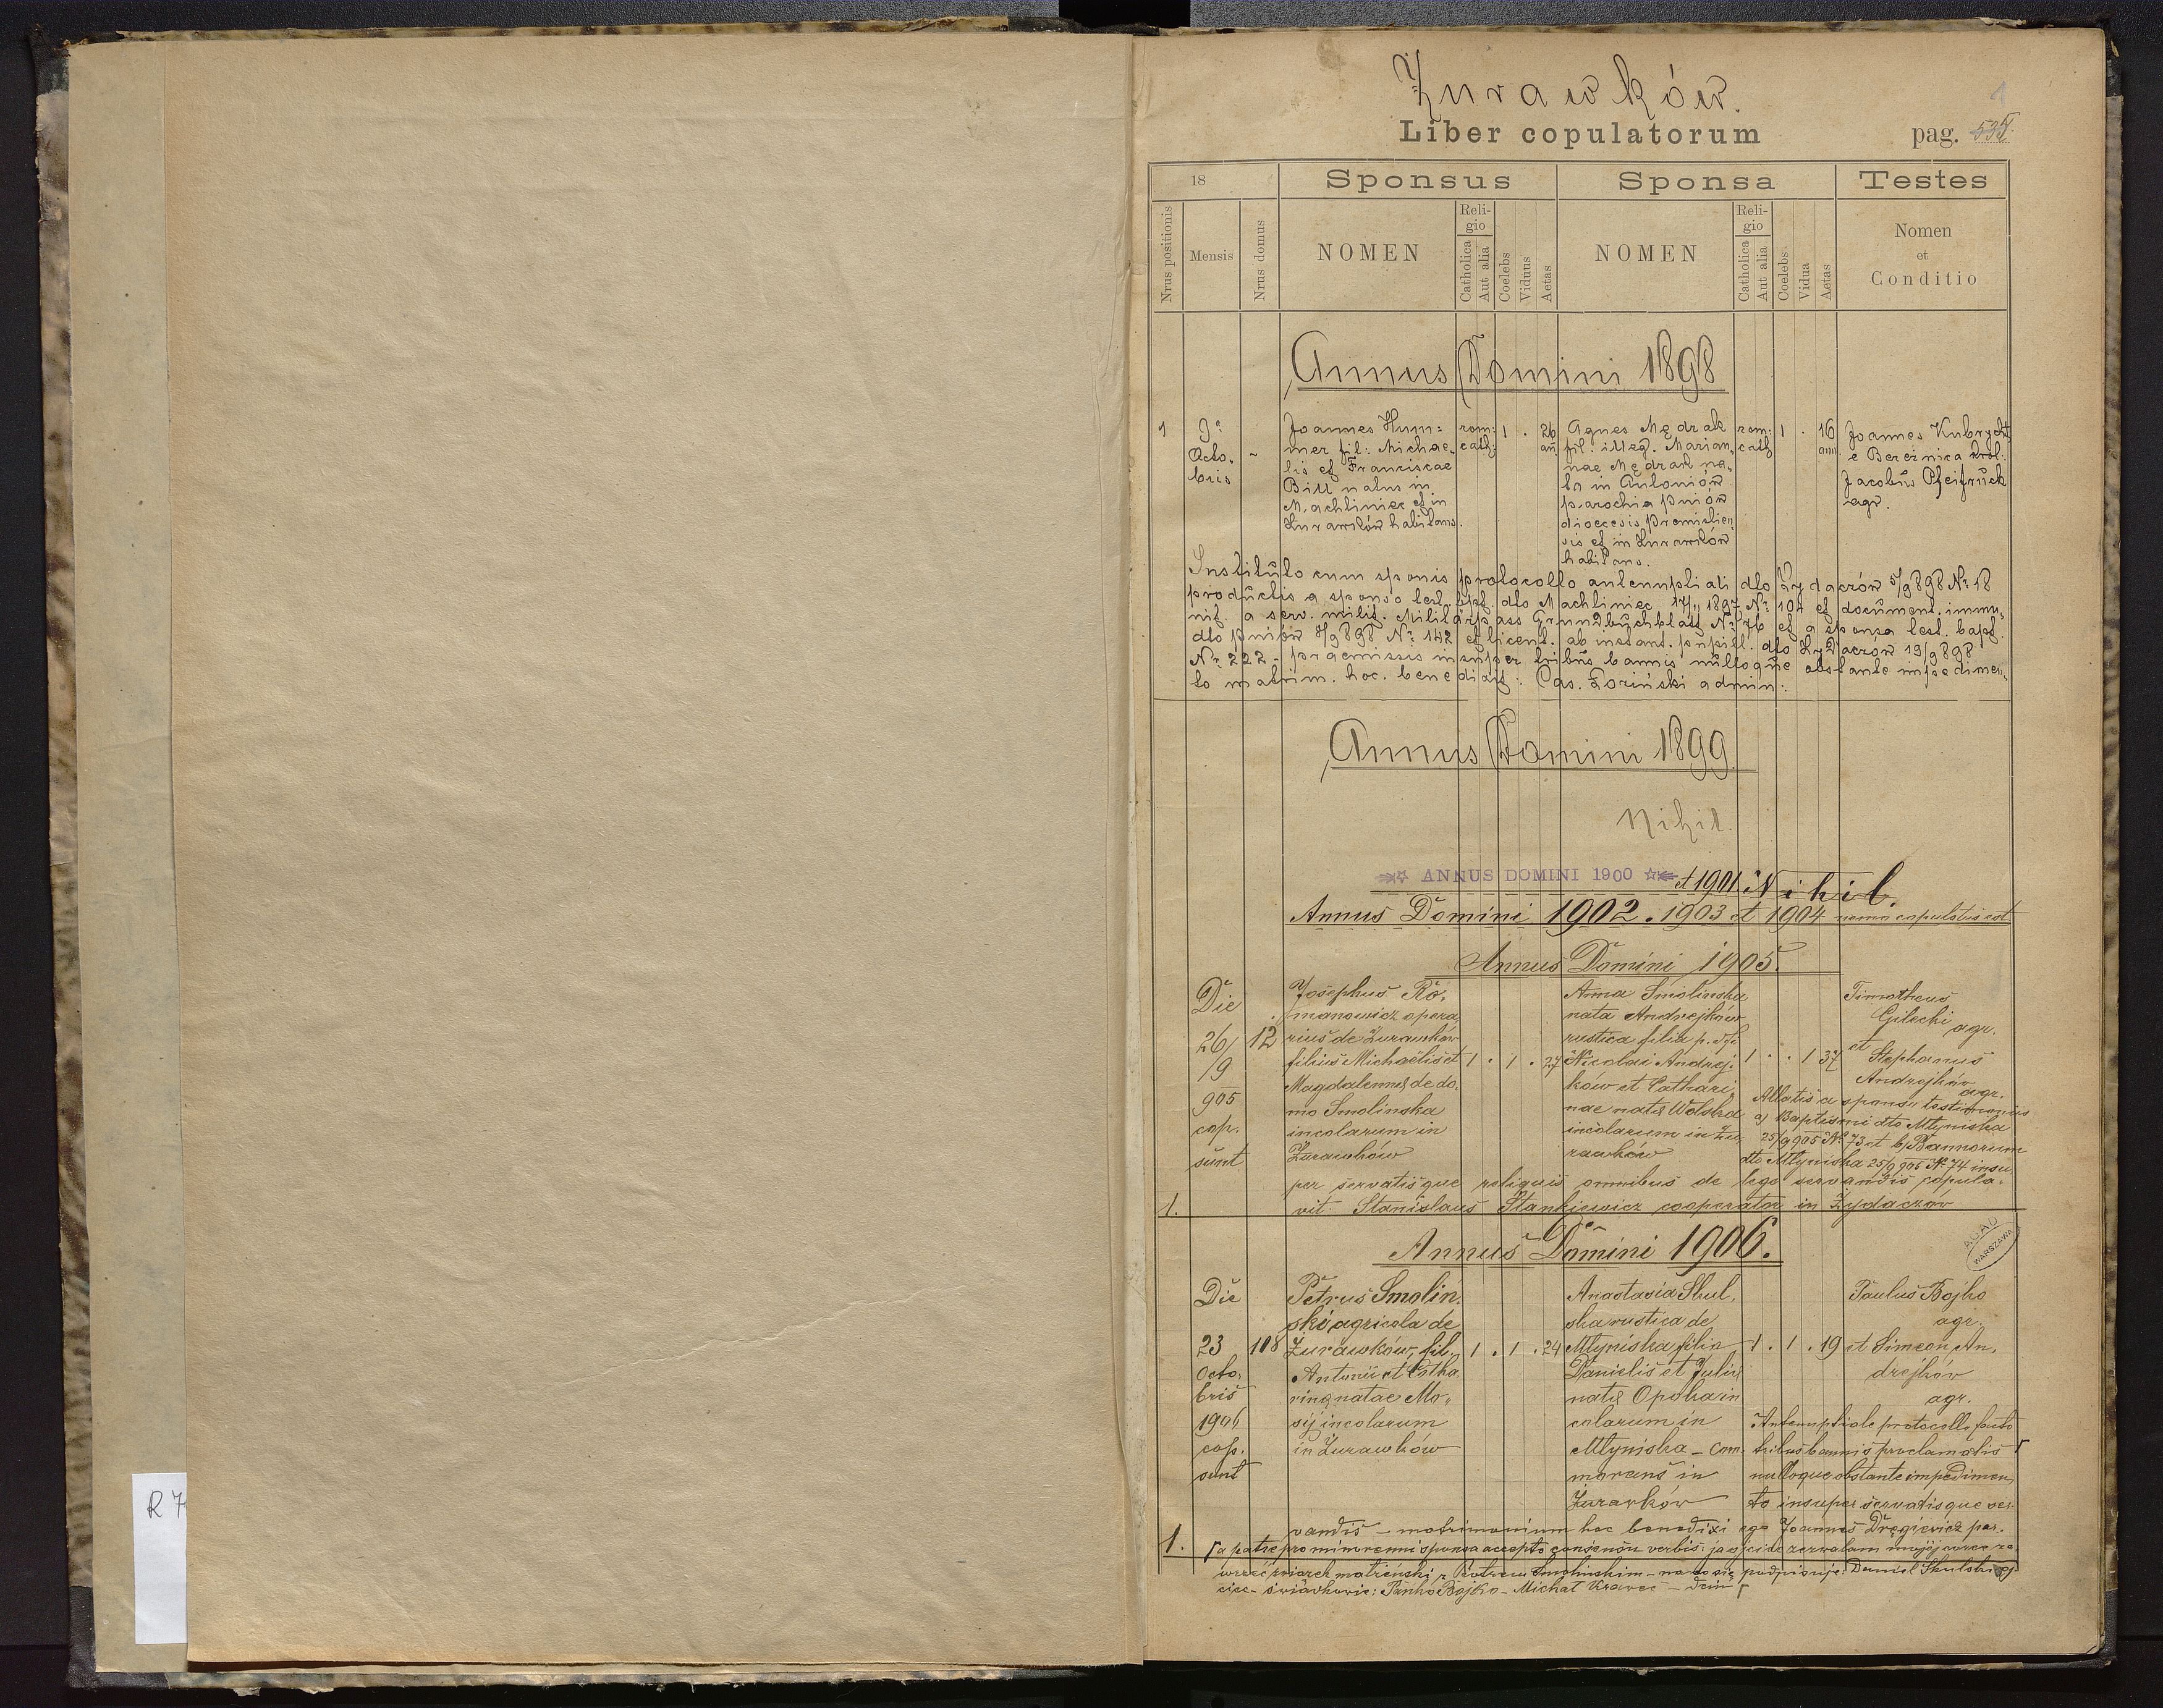 Żurawków.
1
Liber copulatorum
pag. 535.
18
Sponsus
Sponsa
Testes
Nrus positionis
Mensis
Nrus domus
NOMEN
Religio
Catholica
Aut alia
Coelebs
Viduus
Aetas
NOMEN
Religio
Catholica
Aut alia
Coelebs
Vidua
Aetas
Nomen
et
Conditio
Annus Domini 1898
1
9a
Octo-
bris
-
Joannes Hum=
mer fil: Michae-
lis et Franciscae
Bill natus in
Machliniec et in
Żurawków habitans.
rom:
cath:
1 . 26
an
Agnes Mędrak
fil. illeg. Marian-
nae Mędrak na-
ta in Antoniów
parochia Pniów
dioecesis Premislien-
sis et in Żurawków
habitans.
rom:
cath
1 . 16
ann.
Joannes Kubrycht
e Bereznica król:
Jacobus Pfeifruck
agr.
Instituto cum sponis protocollo antenuptiali dto Żydaczów 5/9 898 No 18
productis a sponso test. bpt. dto Machliniec 17/11 1897 No 104 et document. immu-
nit. a serv. milit. Militärpass Grundbuchblatt No 76 et a sponsa test. bapt.
dto Pniów 7/9 898 No 142 et licent. ab instant. pupill. dto Żydaczów 19/9 898
No 222 - praemissis insuper tribus bannis nulloque obstante impedimen-
to matrim. hoc. benedixit: Cas. Łoziński admin:
Annus Domini 1899.
Nihil.
ANNUS DOMINI 1900 et 1901 Nihil.
Annus Domini 1902. 1903 et 1904 nemo copulatus est
Annus Domini 1905.
Die
26/
/9
905
cop.
sunt
12
Josephus Ro-
manowicz opera-
rius de Żurawków
filius Michaëlis et
Magdalennae de do-
mo Smolinska
incolarum in
Żurawków
1 . 1 . 27
Anna Smolinska
nata Andrejków
rustica filia p. def.
Nicolai Andrej-
ków et Cathari-
nae natae Wolska
incolarum in Żu-
rawków
1 . . 1 37
Timotheus
Gilecki
agr.
et
Stephanus
Andrejków
agr.
Allatis a sponsu testimoniis
a) Baptismi dto Młyniska
25/9 905 No 73 et b) Bannorum
dto Młyniska 25/9 905 No 74 insu-
per servatisque reliquis omnibus de lege servandis copula-
1.
vit Stanislaus Stankiewicz cooperator in Żydaczów
AGAD
WARSZAWA
Annus Domini 1906.
Die
23
Octo-
bris
1906
cop.
sunt
108
Petrus Smolin-
ski agricola de
Żurawków, fil.
Antonii et Catha-
rinae natae Mo-
sij incolarum
in Żurawków
1 . 1 . 24
Anastasia Skul-
ska rustica de
Młyniska filia
Danielis et Juliae
natae Opoka in
colarum in
Młyniska - Com-
morans in
Żurawków
1 . 1 . 19
Paulus Bojko
agr.
et Simeon An-
drejków
agr.
Antenuptiale protocollo facto
tribus bannis proclamatis Γ
nulloque obstante impedimen-
to insuper servatisque ser-
vandis - matrimonium hoc benedixi ego Joannes Dręgiewicz par.
1.
Γ a patre pro minorenni sponsa accepto consensu verbis: ja ojciec zezwalam mojej córce za-
wrzeć związek małżeński z Piotrem Smolinskim - na co się podpisuję: Daniel Skulski oj-
ciec - świadkowie: Pańko Bojko - Michał Krawec - dein Γ